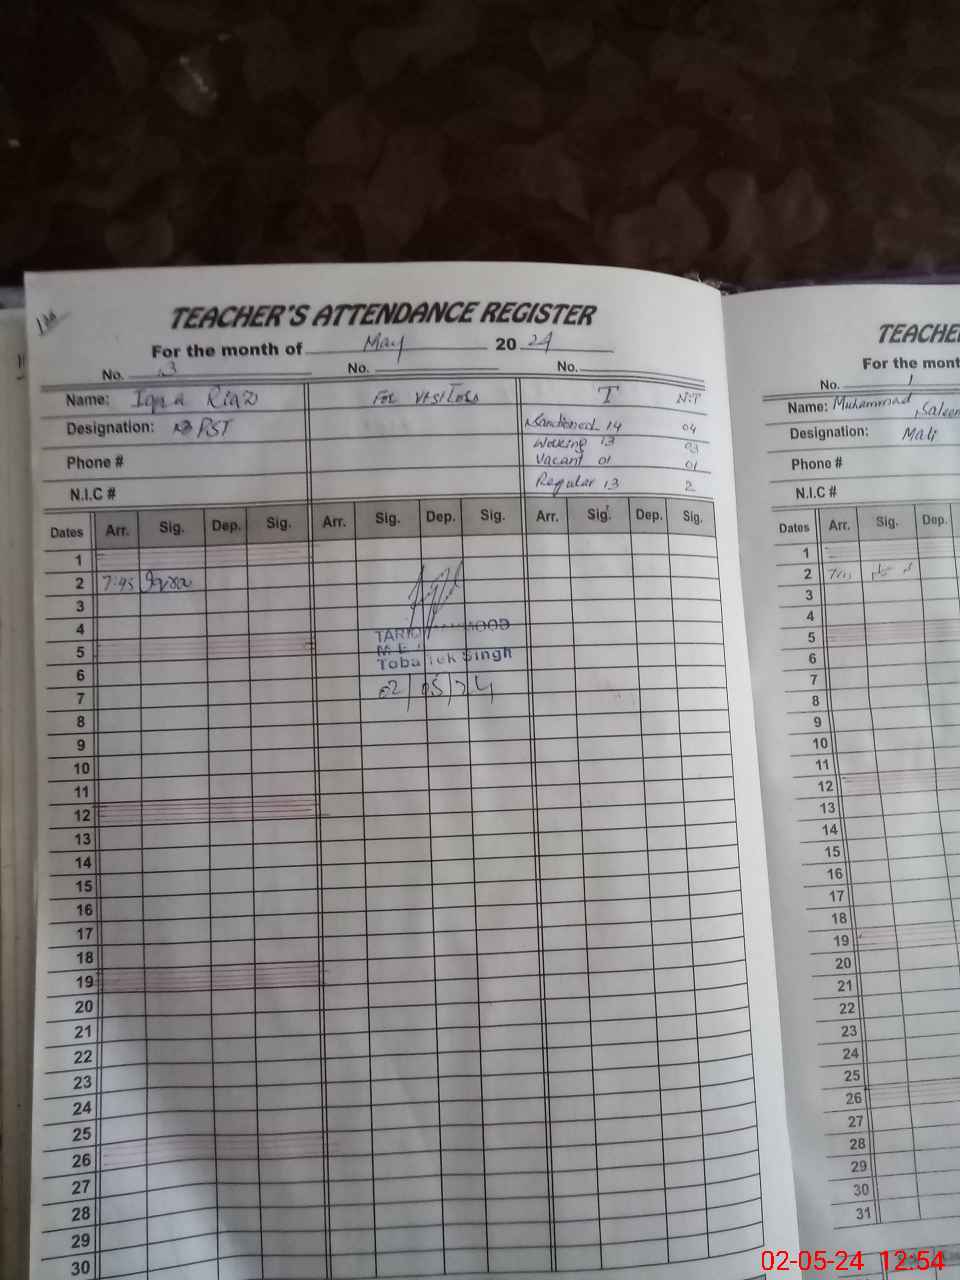 TEACHER'S ATTENDANCE REGISTER
For the month of May 20 24
No. 13 No. No.
Name: Iqra Riaz For Visitors T N.T
Designation: PST Sanctioned 14 04
Working 13 03
Phone # Vacant 01 01
N.I.C # Regular 13 2
Dates Arr. Sig. Dep. Sig. Arr. Sig. Dep. Sig. Arr. Sig. Dep. Sig.
1
2 7:45 Iqra
3
4
TARIQ MOOD
5
Toba Tek Singh
6
02/05/24
7
8
9
10
11
12
13
14
15
16
17
18
19
20
21
22
23
24
25
26
27
28
29
30
TEACHE
For the mont
No. 1
Name: Muhammad Saleem
Designation: Mali
Phone #
N.I.C #
Dates Arr. Sig. Dep.
1
2
3
4
5
6
7
8
9
10
11
12
13
14
15
16
17
18
19
20
21
22
23
24
25
26
27
28
29
30
31
02-05-24 12:54